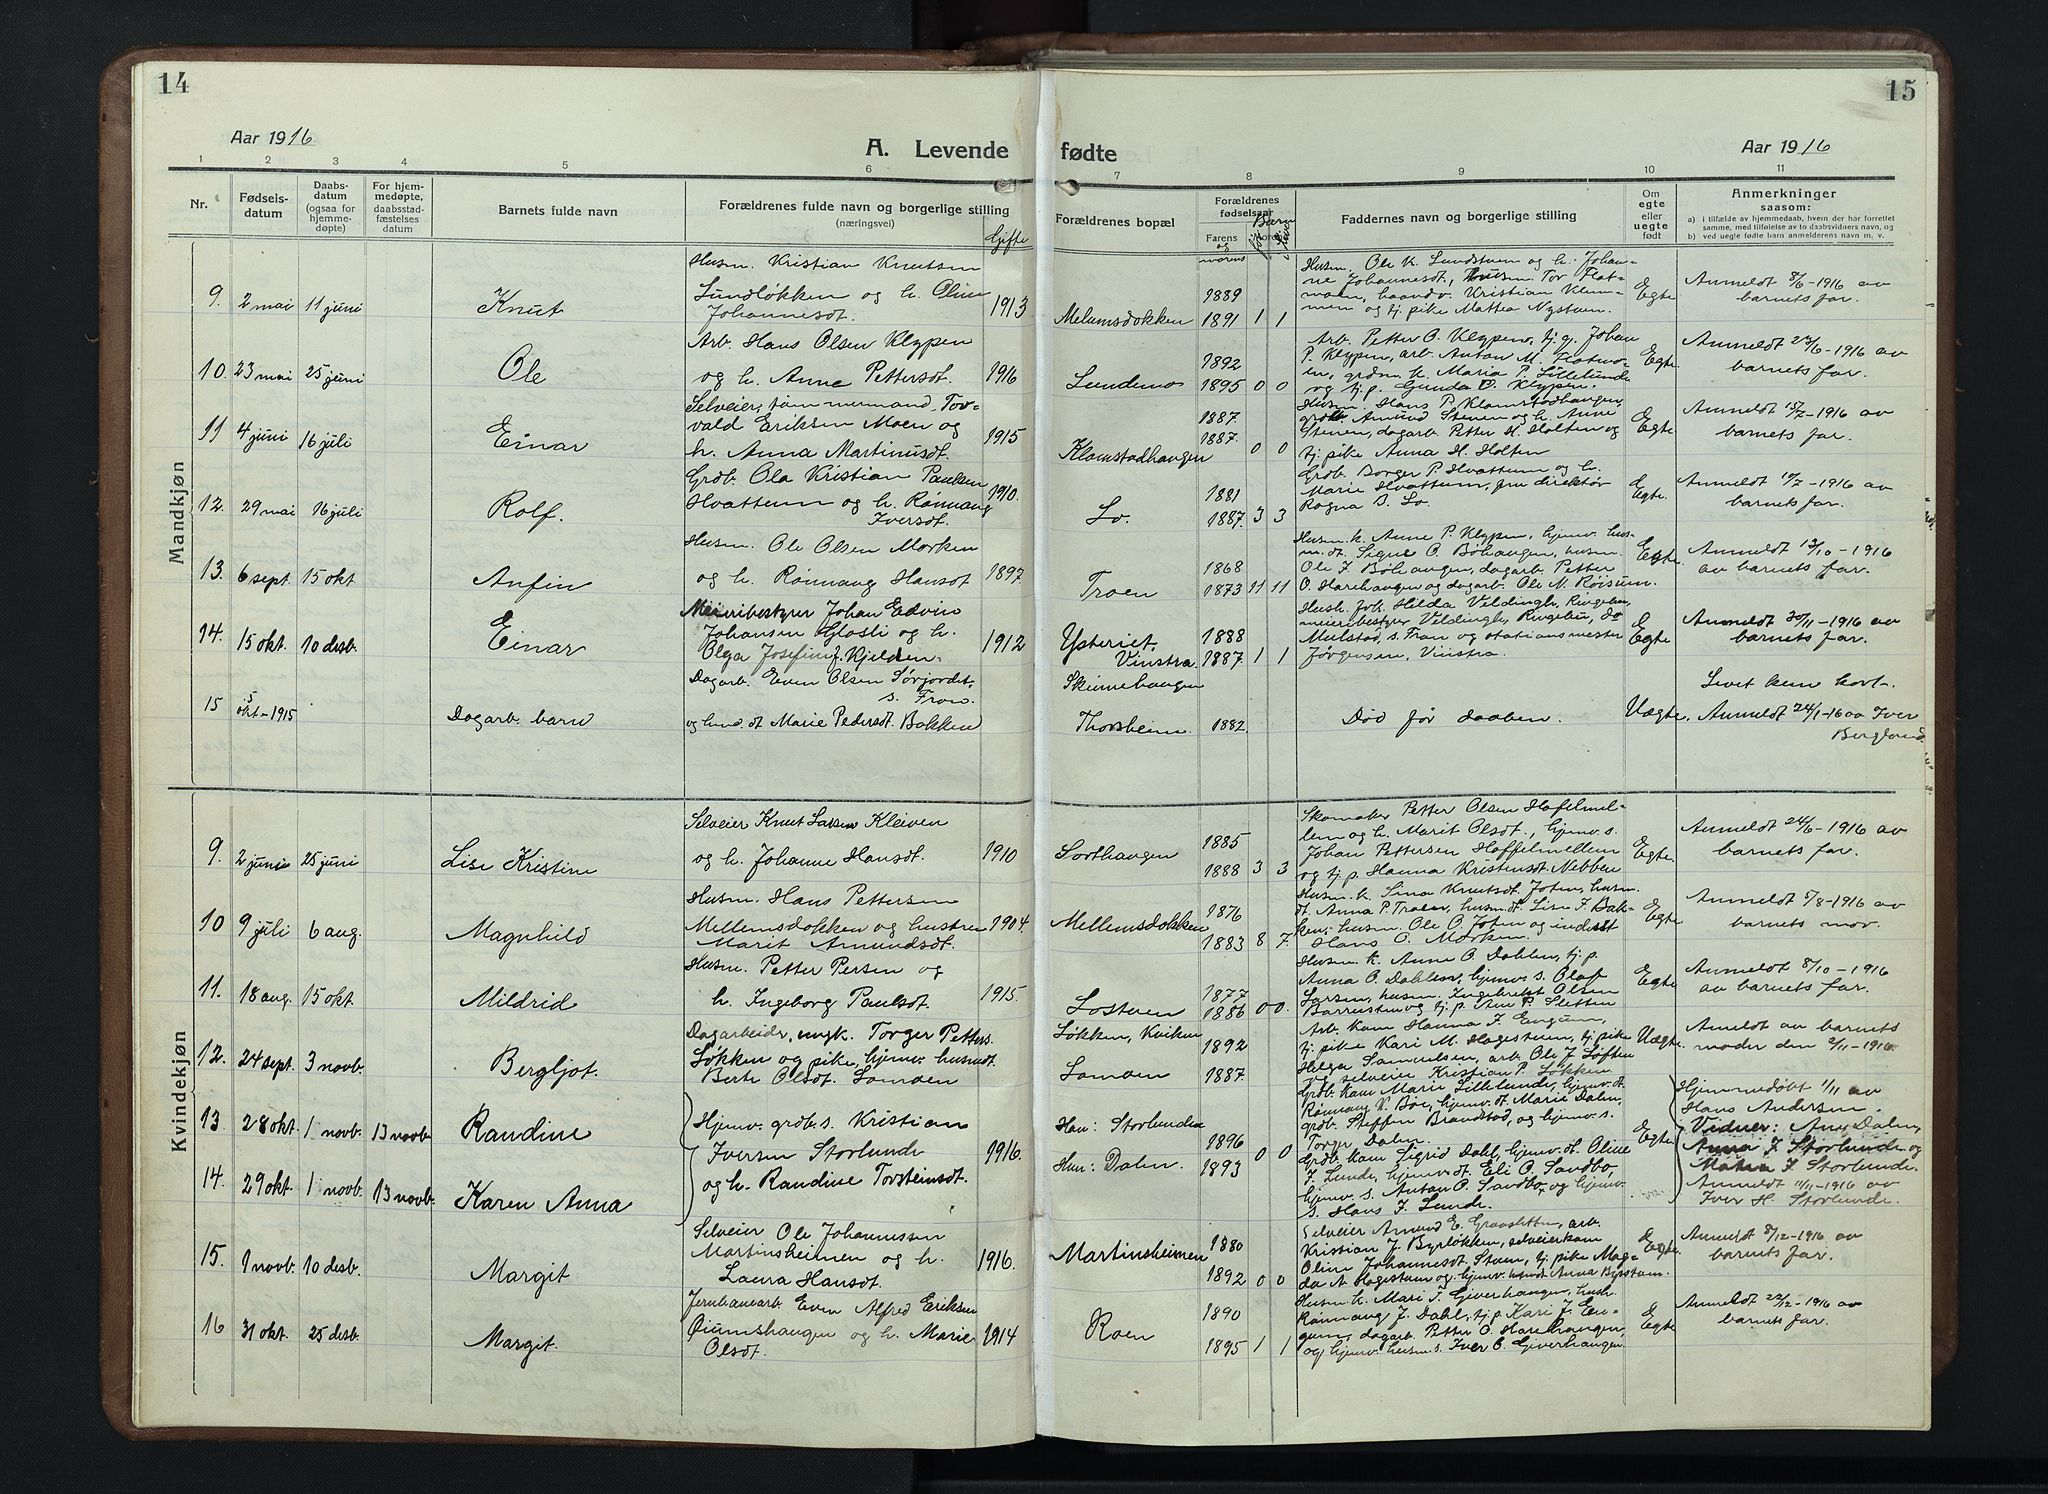 14
15
Aar 1916.
A. Levende fødte
Aar 1916
1 2 3 4 5 6 7 8 9 10 11
Nr.
Fødsels-
datum
Daabs-
datum
(ogsaa for
hjemme-
døpte)
For hjem-
medøpte,
daabsstad-
fæstelses
datum
Barnets fulde navn
Forældrenes fulde navn og borgerlige stilling
(næringsvei)
Gifte
Forældrenes bopæl
Forældrenes
fødselsaar
Farens
og
morens
Faddernes navn og borgerlige stilling
Om
egte
eller
uegte
født
Anmerkninger
saasom:
a) i tilfælde av hjemmedaab, hvem der har forrettet
samme, med tilføielse av to daabsvidners navn, og
b) ved uegte fødte barn anmelderens navn m. v.
Mandkjøn
9. 2 mai 11 juni Knut
Husm. Kristian Knutsen
Lundløkken og h. Oline
Johannesdt. 1913
Melumsdokken 1889 1891 1 1
Husm. Ole K. Lundstuen og h. Johan-
ne Johannesdt., Husm. Tor Flat-
moen, haandv. Kristian Klem-
men og tj. pike Mattea Nystuen.
Egte
Anmeldt 8/6-1916 av
barnets far.
10. 23 mai 25 juni Ole
Arb. Hans Olsen Klypen
og h. Anne Pettersdt. 1916
Lundemo 1892 1895 0 0
Arb. Petter O. Klypen, tj. g. Johan
P. Klypen, arb. Anton M. Flatmo-
en, grdm. k. Maria P. Lillelunde
og tj. p. Gunda O. Klypen.
Egte
Anmeldt 22/6-1916 av
barnets far.
11 4 juni 16 juli Einar
Selveier, tømmermand Tor-
vald Eriksen Moen og
h. Anna Martinusdt. 1915
Klomstadhaugen 1887. 1887. 0 0
Husm. Hans P. Klomstadhaugen,
grdb. Amund Stenen og h. Anne
Stenen, dagarb. Petter H. Holten og
tj. pike Anna H. Holten
Egte
Anmeldt 15/7-1916 av
barnets far.
12. 29 mai 16 juli Rolf.
Grdb. Ola Kristian Paulsen
Hvattum og h. Rønnaug
Iversdt. 1910.
Lo. 1881 1887. 3 3
Grdb. Borger P. Hvattum og h.
Marie Hvattum, fru direktør
Ragna B. Lo.
Egte.
Anmeldt 10/7-1916 av
barnets far.
13. 6 sept. 15 okt Anfin
Husm. Ole Olsen Morken
og h. Rønnaug Hansdt 1897.
Troen 1868 1873 11 11
Husm. k. Anne P. Klypen, hjemv. hus-
m. dt. Signe O. Bøhaugen, husm.
Ole J. Bøhaugen, dagarb. Petter
O. Harehaugen og dagarb. Ole N. Røisum.
Egte
Anmeldt 13/10-1916
av barnets far.
14. 15 okt. 10 desb. Einar
Meieribestyrer Johan Edvin
Johansen Glosli og h.
Olga Josefin f. Kjelden. 1912
Ysteriet,
Vinstra. 1888 1887. 1 1
Hush. frk. Hilda Veldingh, Ringebu,
meieribestyrer Veldingh, Ringebu, do
Mulstad, s. Fron og stationsmester
Jørgensen, Vinstra.
Egte
Anmeldt 30/11-1916 av
barnets far.
15 5 okt-1915 Dagarb. barn
Dagarb. Even Olsen Sørjordet,
s. Fron.
og husm. dt Marie Pedersdt. Bakken
Skurnehaugen
Thorsheim 1882
Død før daaben.
Uegte.
Levet kun kort.
Anmeldt 24/1-16 av Iver
Bergland.
Kvindekjøn
9. 2 juni 25 juni Lise Kristine
Selveier Knut Larsen Kleiven
og h. Johanne Hansdt. 1910
Sorthaugen 1885 1888 3 3
Skomaker Petter Olsen Hafelmel-
lem og h. Marit Olsdt., hjemv. s.
Johan Pettersen Hoffelmellem
og tj. p. Hanna Kristensdt Nebben
Egte
Anmeldt 24/6-1916 av
barnets far.
10 9 juli 6 aug. Magnhild
Husm. Hans Pettersen
Mellemsdokken og hustru
Marit Amundsdt. 1904.
Mellemsdokken 1876 1883 8 7
Husm. k. Sina Knutsdt. Joten, husm.
dt. Anna P. Troen, husm. dt. Lise J. Bak-
ken, husm. Ole O. Joten og inderst
Hans O. Morken.
Egte
Anmeldt 5/8-1916 av
barnets mor.
11. 18 aug. 15 okt. Mildrid
Husm. Petter Persen og
h. Ingeborg Paulsdt. 1915.
Lostuen 1877 1886 0 0.
Husm. k. Anne O. Dahlen, tj. p.
Anna O. Dahlen, hjemv. s. Olaf
Larsen, husm. Ingebrekt Olsen
Barrusten og tj. p. Ane P. Sletten
Egte
Anmeldt 8/10-1916
av barnets far.
12. 24 sept. 3 novb. Bergljot.
Dagarbeider, ungk. Torger Petters.
Løkken og pike, hjemv. husmdt.
Berte Olsdt. Lomoen
Løkken, Kviken 1892
Lomoen 1887.
Arb. kam Hanna J. Engum,
tj. pike Kari M. Hagestuen, tj. pike
Helga Samuelsen, arb. Ole J. Løften
og selveier Kristian P. Løkken.
Uegte.
Anmeldt av barnets
moder den 2/11-1916.
13 28 okt. 1 novb. 13 novb. Randine
Hjemv. grdb. s. Kristian
Iversen Storlunde
og h. Randine Torsteinsdt. 1916.
Han: Storlunden 1896
Hun: Dalen. 1893 0 0
Grdb. kam Marie Lillelunde, hjemv. dt.
Rønnaug V. Bøe, hjemv. dt. Marie Dalen,
grdb. Steffen Brandstad, og hjemv. s.
Torger Dalen.
Egte
Hjemmedøbt 1/11 av
Hans Andersen.
Vidner: Ane Dalen,
Anna J. Storlunde og
Mathea J. Storlunde.
Anmeldt 11/11-1916 av
Iver H. Storlunde.
14. 29 okt. 1 novb. 13 novb. Karen Anna
Grdb. kam Sigrid Dahl, hjemv. dt. Oline
J. Lunde, hjemv. dt. Eli O. Sandbo,
hjemv. s. Anton O. Sandbo, og hjemv.
s. Hans J. Lunde.
15. 1 novb. 10 desb. Margit
Selveier Ole Johannessen
Martinsheimen og h.
Laura Hansdt. 1916.
Martinsheimen 1880 1892 0 0
Selveier Amund E. Graasletten, arb.
Kristian J. Byrløkken, selveierkam
Oline Johannesdt. Stuen, tj. pike Mag-
da A. Hagestuen og hjemv. husmdt. Anna Byrstuen.
Egte.
Anmeldt 8/12-1916 av
barnets far.
16 31 okt. 25 desb. Margit.
Jernbanearb. Even Alfred Eriksen
Øiumshaugen og h. Marie
Olsdt. 1914
Roen 1890 1895 1 1
Husm. k. Mari T. Giverhaugen, hush.
Rønnaug J. Dahl, tj. p. Kari J. En-
gum, dagarb. Petter O. Harehaugen,
og hjemv. husm. s. Iver O. Giverhaugen.
Egte
Anmeldt 22/12-1916 av
barnets far.